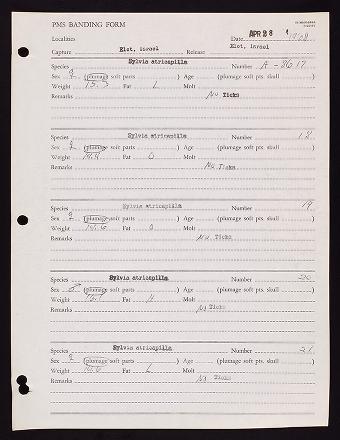 PMS BANDING FORM
Localities Date APR 28 1968
Capture Elat, Israel Release Elat, Israel
Species Sylvia atricapilla Number A-8617
Sex ♀ (plumage soft parts ) Age (plumage soft pts. skull )
Weight 15.5 Fat L Molt
Remarks No Ticks
Species Sylvia atricapilla Number 18
Sex ♀ (plumage soft parts ) Age (plumage soft pts. skull )
Weight Fat O Molt
Remarks No Ticks
Species Sylvia atricapilla Number 19
Sex ♀ (plumage soft parts ) Age (plumage soft pts. skull )
Weight 14.6 Fat O Molt
Remarks No Ticks
Species Sylvia atricapilla Number 20
Sex ♂ (plumage soft parts ) Age (plumage soft pts. skull )
Weight Fat H Molt
Remarks No Ticks
Species Sylvia atricapilla Number 21
Sex ♀ (plumage soft parts ) Age (plumage soft pts. skull )
Weight Fat L Molt
Remarks No Ticks